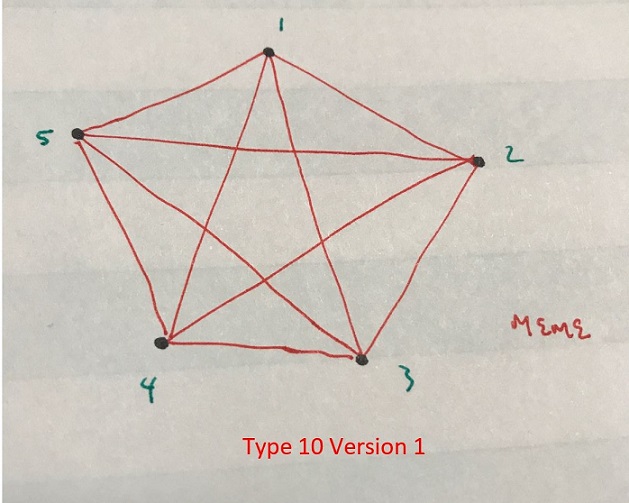 1
5
2
MEME
4
3
Type 10 Version 1